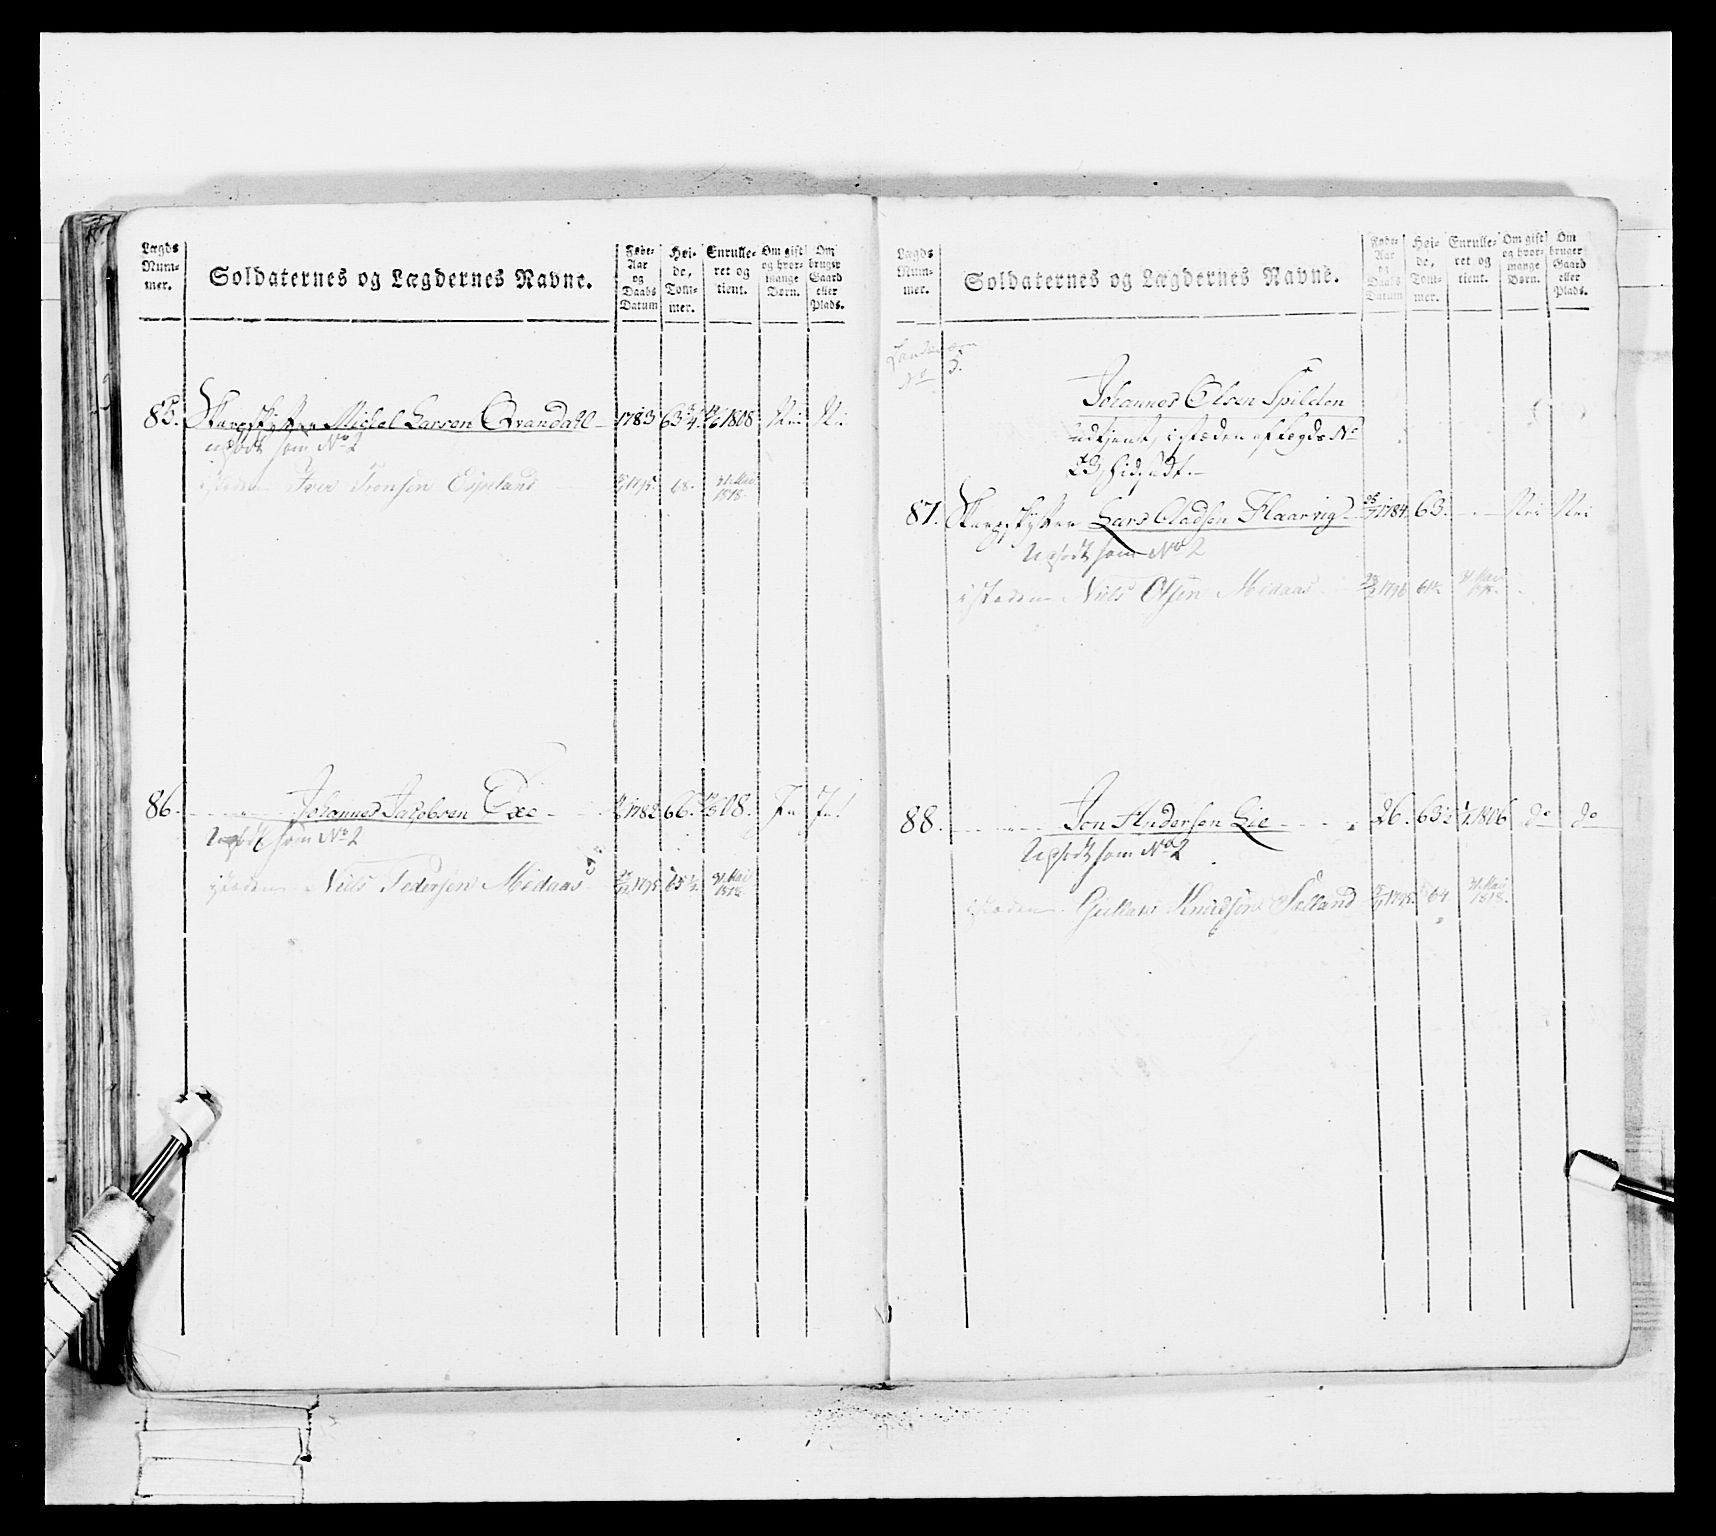 Lægds
Num-
mer.
Soldaternes og Lægdernes Navne.
Føde-
Aar
og
Daabs
Datum
Høi-
de,
Tom-
mer.
Enrulle-
ret og
tient.
Om gift
og hvor-
mange
Børn.
Om
bruger
Gaard
eller
Plads.
85. Skarpskytter Michel Larsen Qvandahl 1783 63 3/4 1808 Nei Nei
No 2
isteden Iver Espeland 68. Mai
1818.
86. Johannes Jacobsen Exe 1782 66. 08. Ja Ja
No 2
isteden Niels Pedersen Midaas 1795 65 1/2 Mai
1818
Lægds
Num-
mer.
Soldaternes og Lægdernes Navne.
Føde-
Aar
og
Daabs
Datum
Høi-
de,
Tom-
mer.
Enrulle-
ret og
tient.
Om gift
og hvor-
mange
Børn.
Om
bruger
Gaard
eller
Plads.
No 3.
Johannes Olsen Spilden
udtient, isteden af Lægds No
87. Skarpskytter Lars Oladsen Flaarvig 1784. 63. Nei Nei
som No 2
isteden Niels Olsen Midaas 1796 Mai
1818.
88. Jon Andersen Lie 26. 63 1/2 1806 do do
som No 2
isteden Knudsen Sælland 1795. 64 Mai
1818.